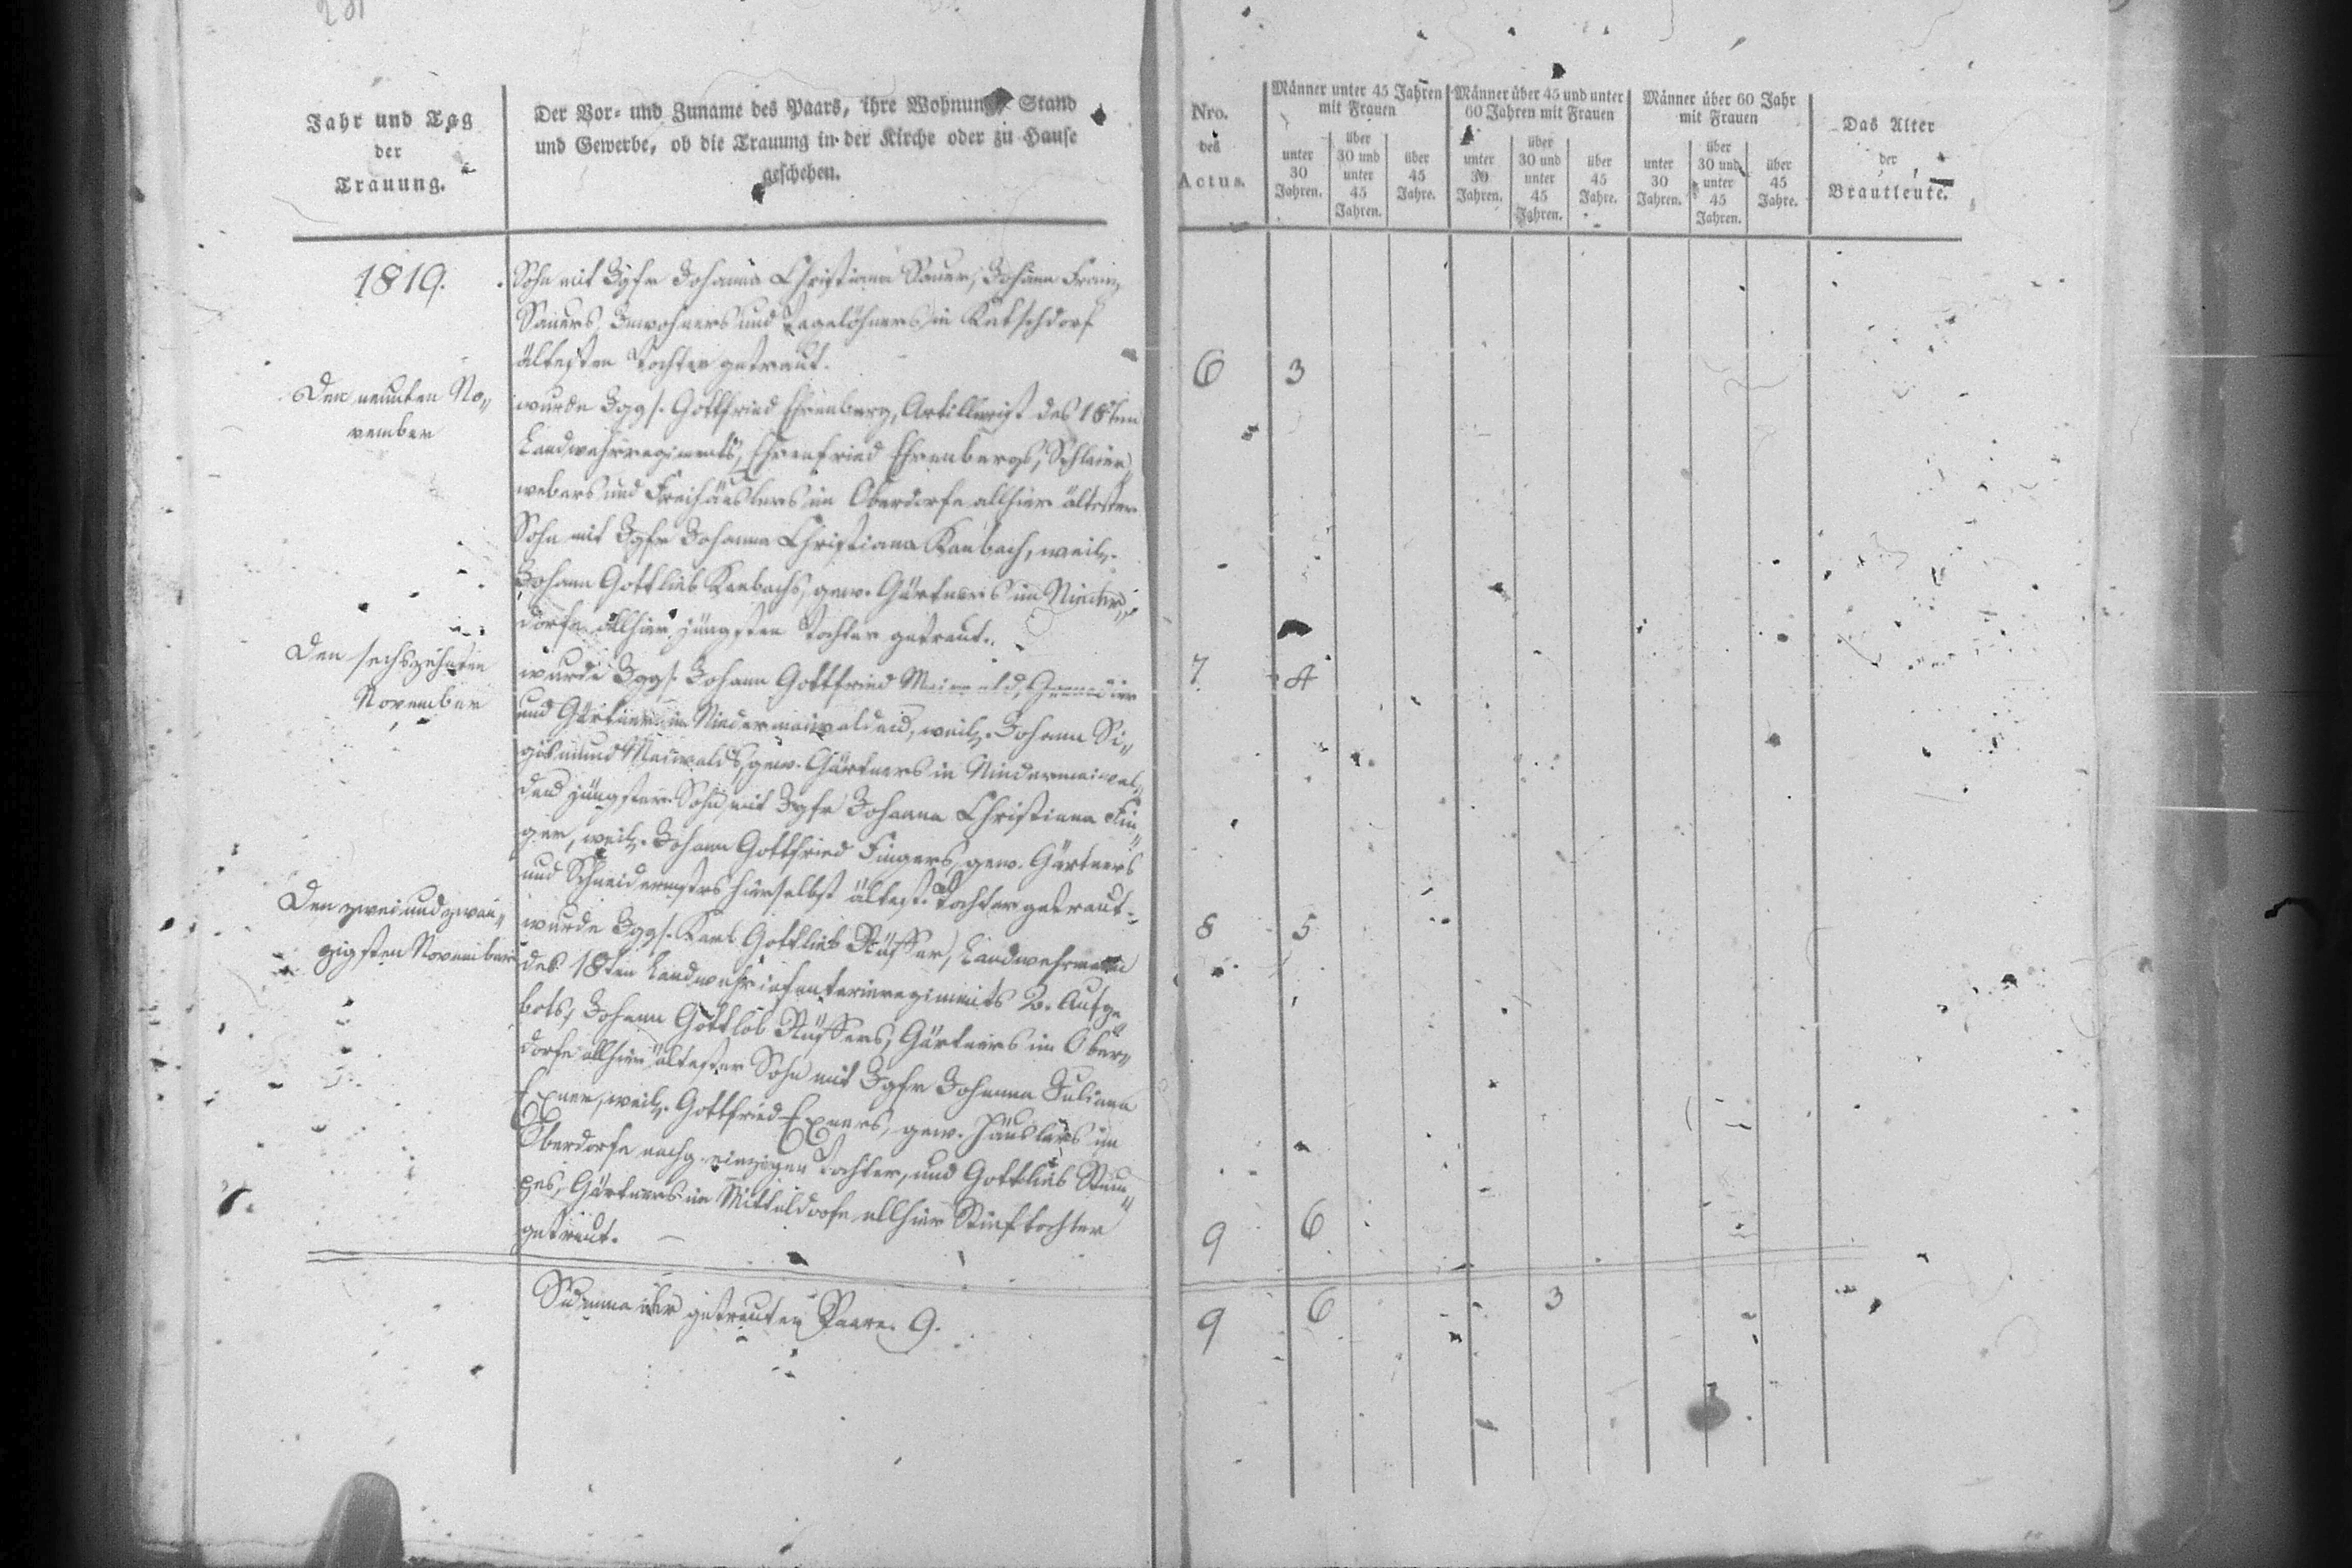 Jahr und Tag
der
Trauung.
Der Vor- und Zuname des Paars, ihre Wohnung, Stand
und Gewerbe, ob die Trauung in der Kirche oder zu Hause
geschehen.
1819.
Sohn mit Igfr Johanna Christiana Sauer, Johann Franz
Sauers, Inwohners und Tagelöhners in Ketschdorf
ältesten Tochter getraut.
Den neunten No-
vember
wurde Jggs. Gottfried Ehrenberg, Artillerist des 18ten
Landwehrregiments, Ehrenfried Ehrenbergs, Schleier-
webers und Freihäuslers im Oberdorfe allhier ältester
Sohn mit Igfr Johanna Christiana Raubach, weil.
Johann Gottlieb Raubachs, gew. Gärtners im Nieder-
dorfe allhier jüngsten Tochter getraut.
Den sechszehnten
November
wurde Jggs. Johann Gottfried Maiwald, Grenadier
und Gärtner in Niedermaiwaldau, weil. Johann Si-
gismund Maiwalds, gew. Gärtners in Niedermaiwal-
dau jüngster Sohn mit Igfr Johanna Christiana Fin-
ger, weil. Johann Gottfried Fingers, gew. Gärtners
und Schneidermstrs hierselbst ältest. Tochter getraut.
Den zwei und zwan-
zigsten November
wurde Jggs. Karl Gottlieb Rüffer, Landwehrmann
des 18ten Landwehrinfanterieregiments 2. Aufge
bots, Johann Gottlob Rüffers, Gärtners im Ober-
dorfe allhier ältester Sohn mit Igfr Johanna Juliana
Exner, weil. Gottfried Exners, gew. Häuslers im
Oberdorfe nachg. einzigen Tochter, und Gottlieb
Gärtners im Mitteldorfe allhier Stieftochter
getraut.
Summa der getrauten Paare. 9.
Nro.
des
Actus.
Männer unter 45 Jahren
mit Frauen
unter
30
Jahren.
über
30 und
unter
45
Jahren.
über
45
Jahre.
Männer über 45 und unter
60 Jahren mit Frauen
unter
30
Jahren.
über
30 und
unter
45
Jahren.
über
45
Jahre.
Männer über 60 Jahr
mit Frauen
unter
30
Jahren.
über
30 und
unter
45
Jahren.
über
45
Jahre.
Das Alter
der
Brautleute.
6 3
7 4
8 5
9 6
9 6 3